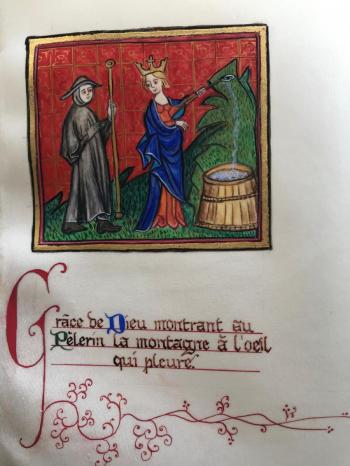 Grâce de Dieu montrant au
Pèlerin la montagne à l'oeil
qui pleure.